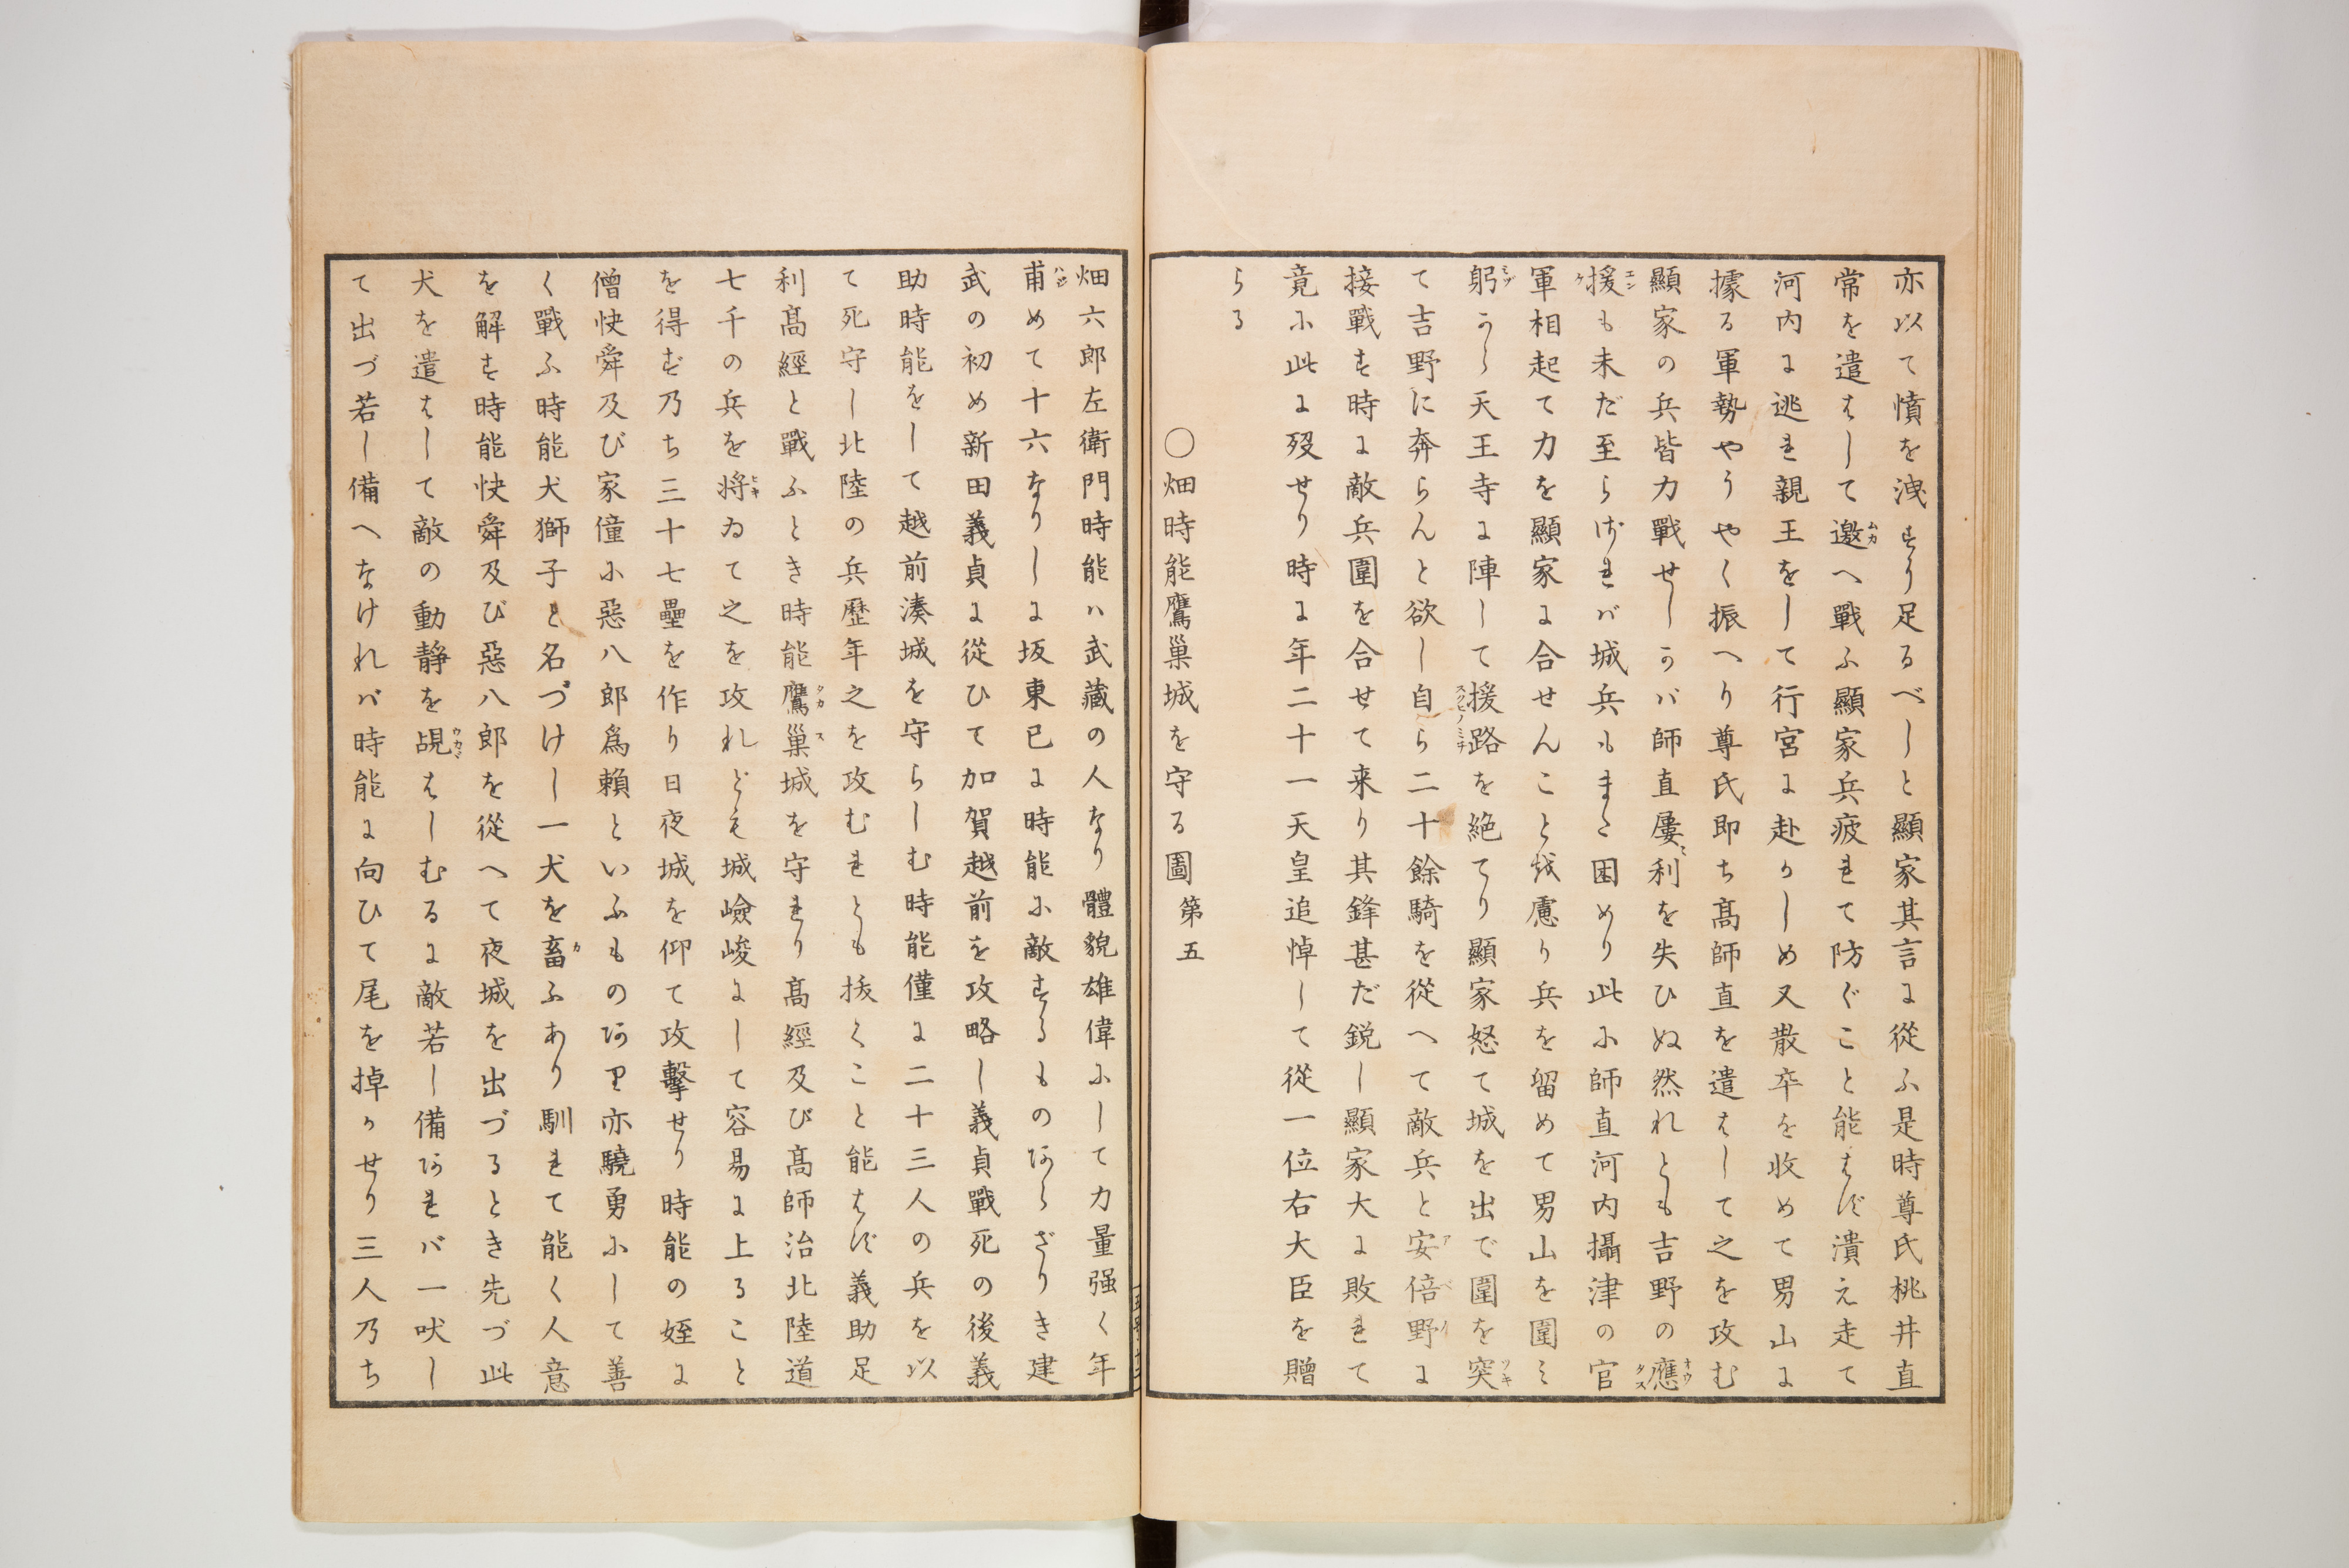 亦以て憤を洩すり足るべしと顯家其言に從ふ是時尊氏桃井直
常を遣はして邀へ戰ふ顯家兵疲れて防ぐこと能はず潰え走て
河内に逃れ親王をして行宮に赴かしめ又散卒を收めて男山に
據る軍勢やうやく振へり尊氏即ち髙師直を遣はして之を攻む
顯家の兵皆力戰せしかバ師直屢〻利を失ひぬ然れとも吉野の應
援も未だ至らざれバ城兵もまた困めり此に師直河内攝津の官
軍相起て力を顯家に合せんことを慮り兵を留めて男山を圍ミ
躬から天王寺に陣して援路を絶てり顯家怒て城を出で圍を突
て吉野に奔らんと欲し自ら二十餘騎を從へて敵兵と安倍野に
接戰す時に敵兵圍を合せて来り其鋒甚だ鋭し顯家大に敗れて
竟に此に歿せり時に年二十一天皇追悼して從一位右大臣を贈
らる
〇畑時能鷹巢城を守る圖 第五
畑六郎左衛門時能ハ武藏の人なり體貌雄偉にして力量强く年
甫めて十六なりしに坂東已に時能に敵するものあらざりき建
武の初め新田義貞に從ひて加賀越前を攻略し義貞戰死の後義
助時能をして越前湊城を守らしむ時能僅に二十三人の兵を以
て死守し北陸の兵歷年之を攻むれとも拔くこと能はず義助足
利髙經と戰ふとき時能鷹巢城を守れり髙經及び髙師治北陸道
七千の兵を将ゐて之を攻れども城嶮峻にして容易に上ること
を得ず乃ち三十七壘を作り日夜城を仰て攻擊せり時能の姪に
僧快舜及び家僮に惡八郎爲賴といふものあり亦驍勇にして善
く戰ふ時能犬獅子と名づけし一犬を畜ふあり馴れて能く人意
を解す時能快舜及び惡八郎を從へて夜城を出づるとき先づ此
犬を遣はして敵の動靜を覘はしむるに敵若し備あれバ一吠し
て出づ若し備へなけれバ時能に向ひて尾を掉かせり三人乃ち